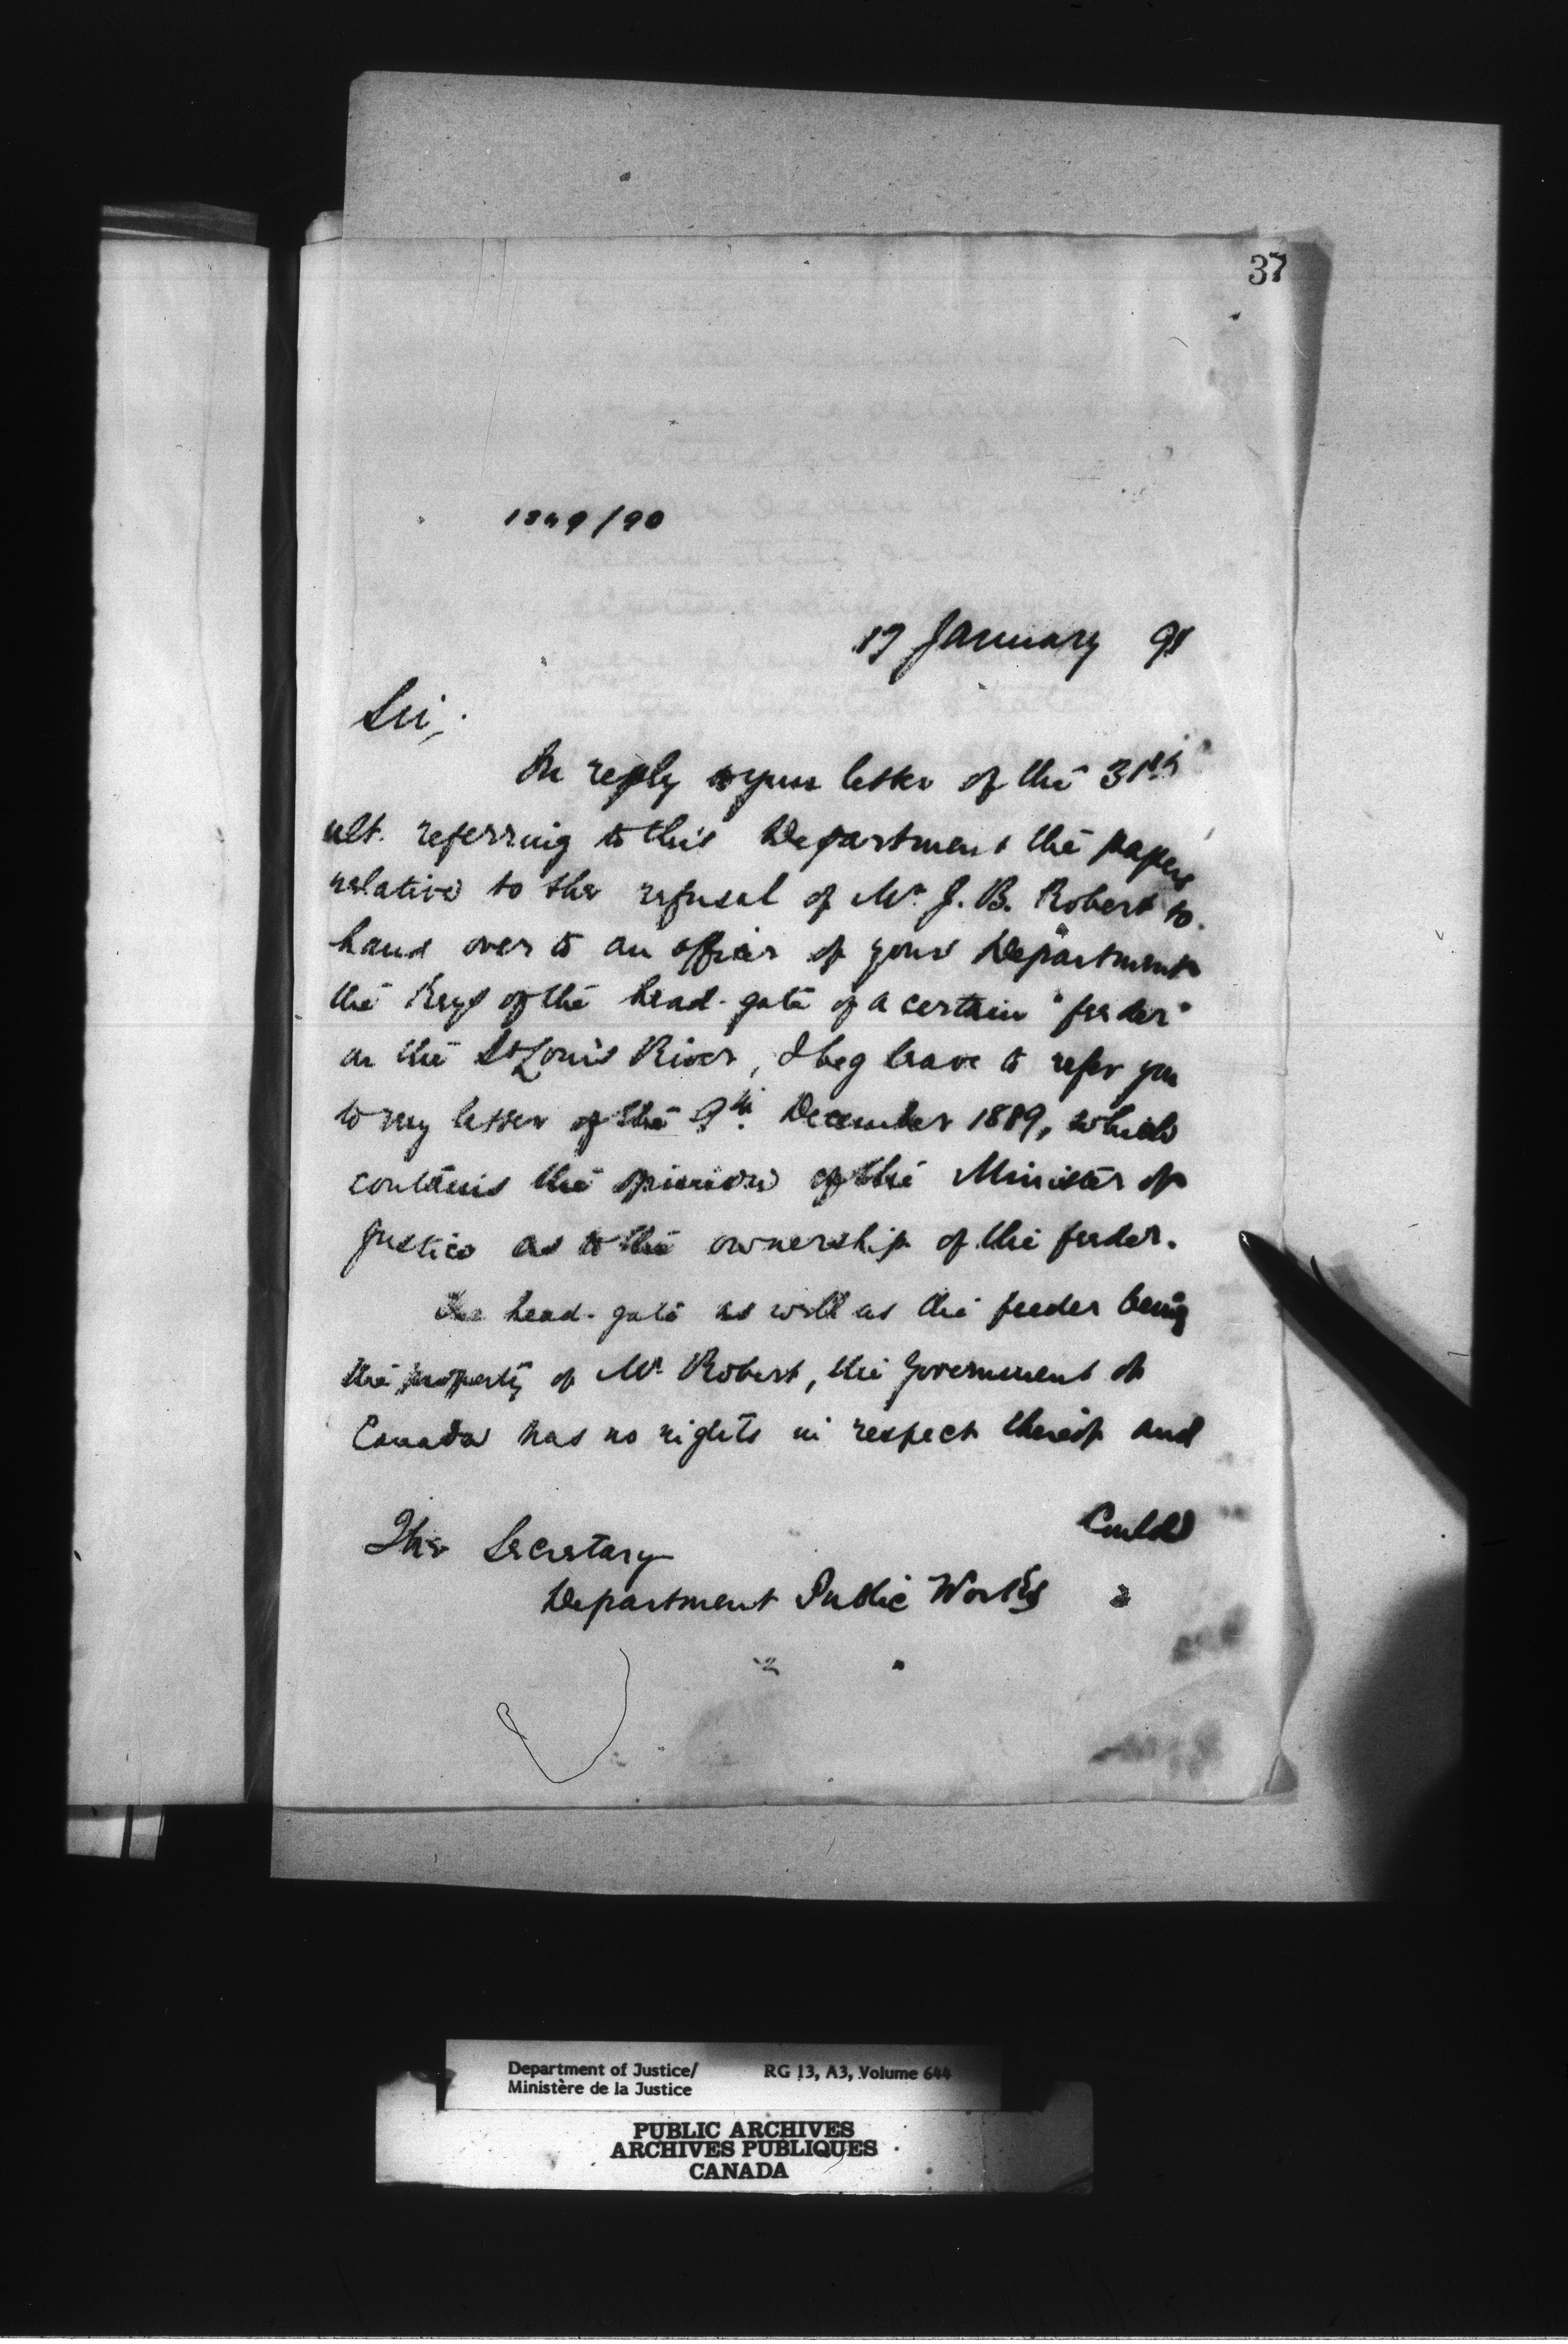 37
1849/90
17 January 91
Sir,
In reply to your letter of the 31st
ult. referring to this Department the papers
relative to the refusal of Mr J. B. Robert to
hand over to an officer of your Department
the keys of the head-gate of a certain "feeder"
on the St Louis River, I beg leave to refer you
to my letter of the 9th December 1889, which
contains the opinion of the Minister of
Justice as to the ownership of the feeder.
The head-gate as well as the feeder being
the property of Mr Robert, the Government of
Canada has no rights in respect thereof and
could
The Secretary
Department Public Works
Department of Justice/ RG 13, A3, Volume 644
Ministère de la Justice
PUBLIC ARCHIVES
ARCHIVES PUBLIQUES
CANADA